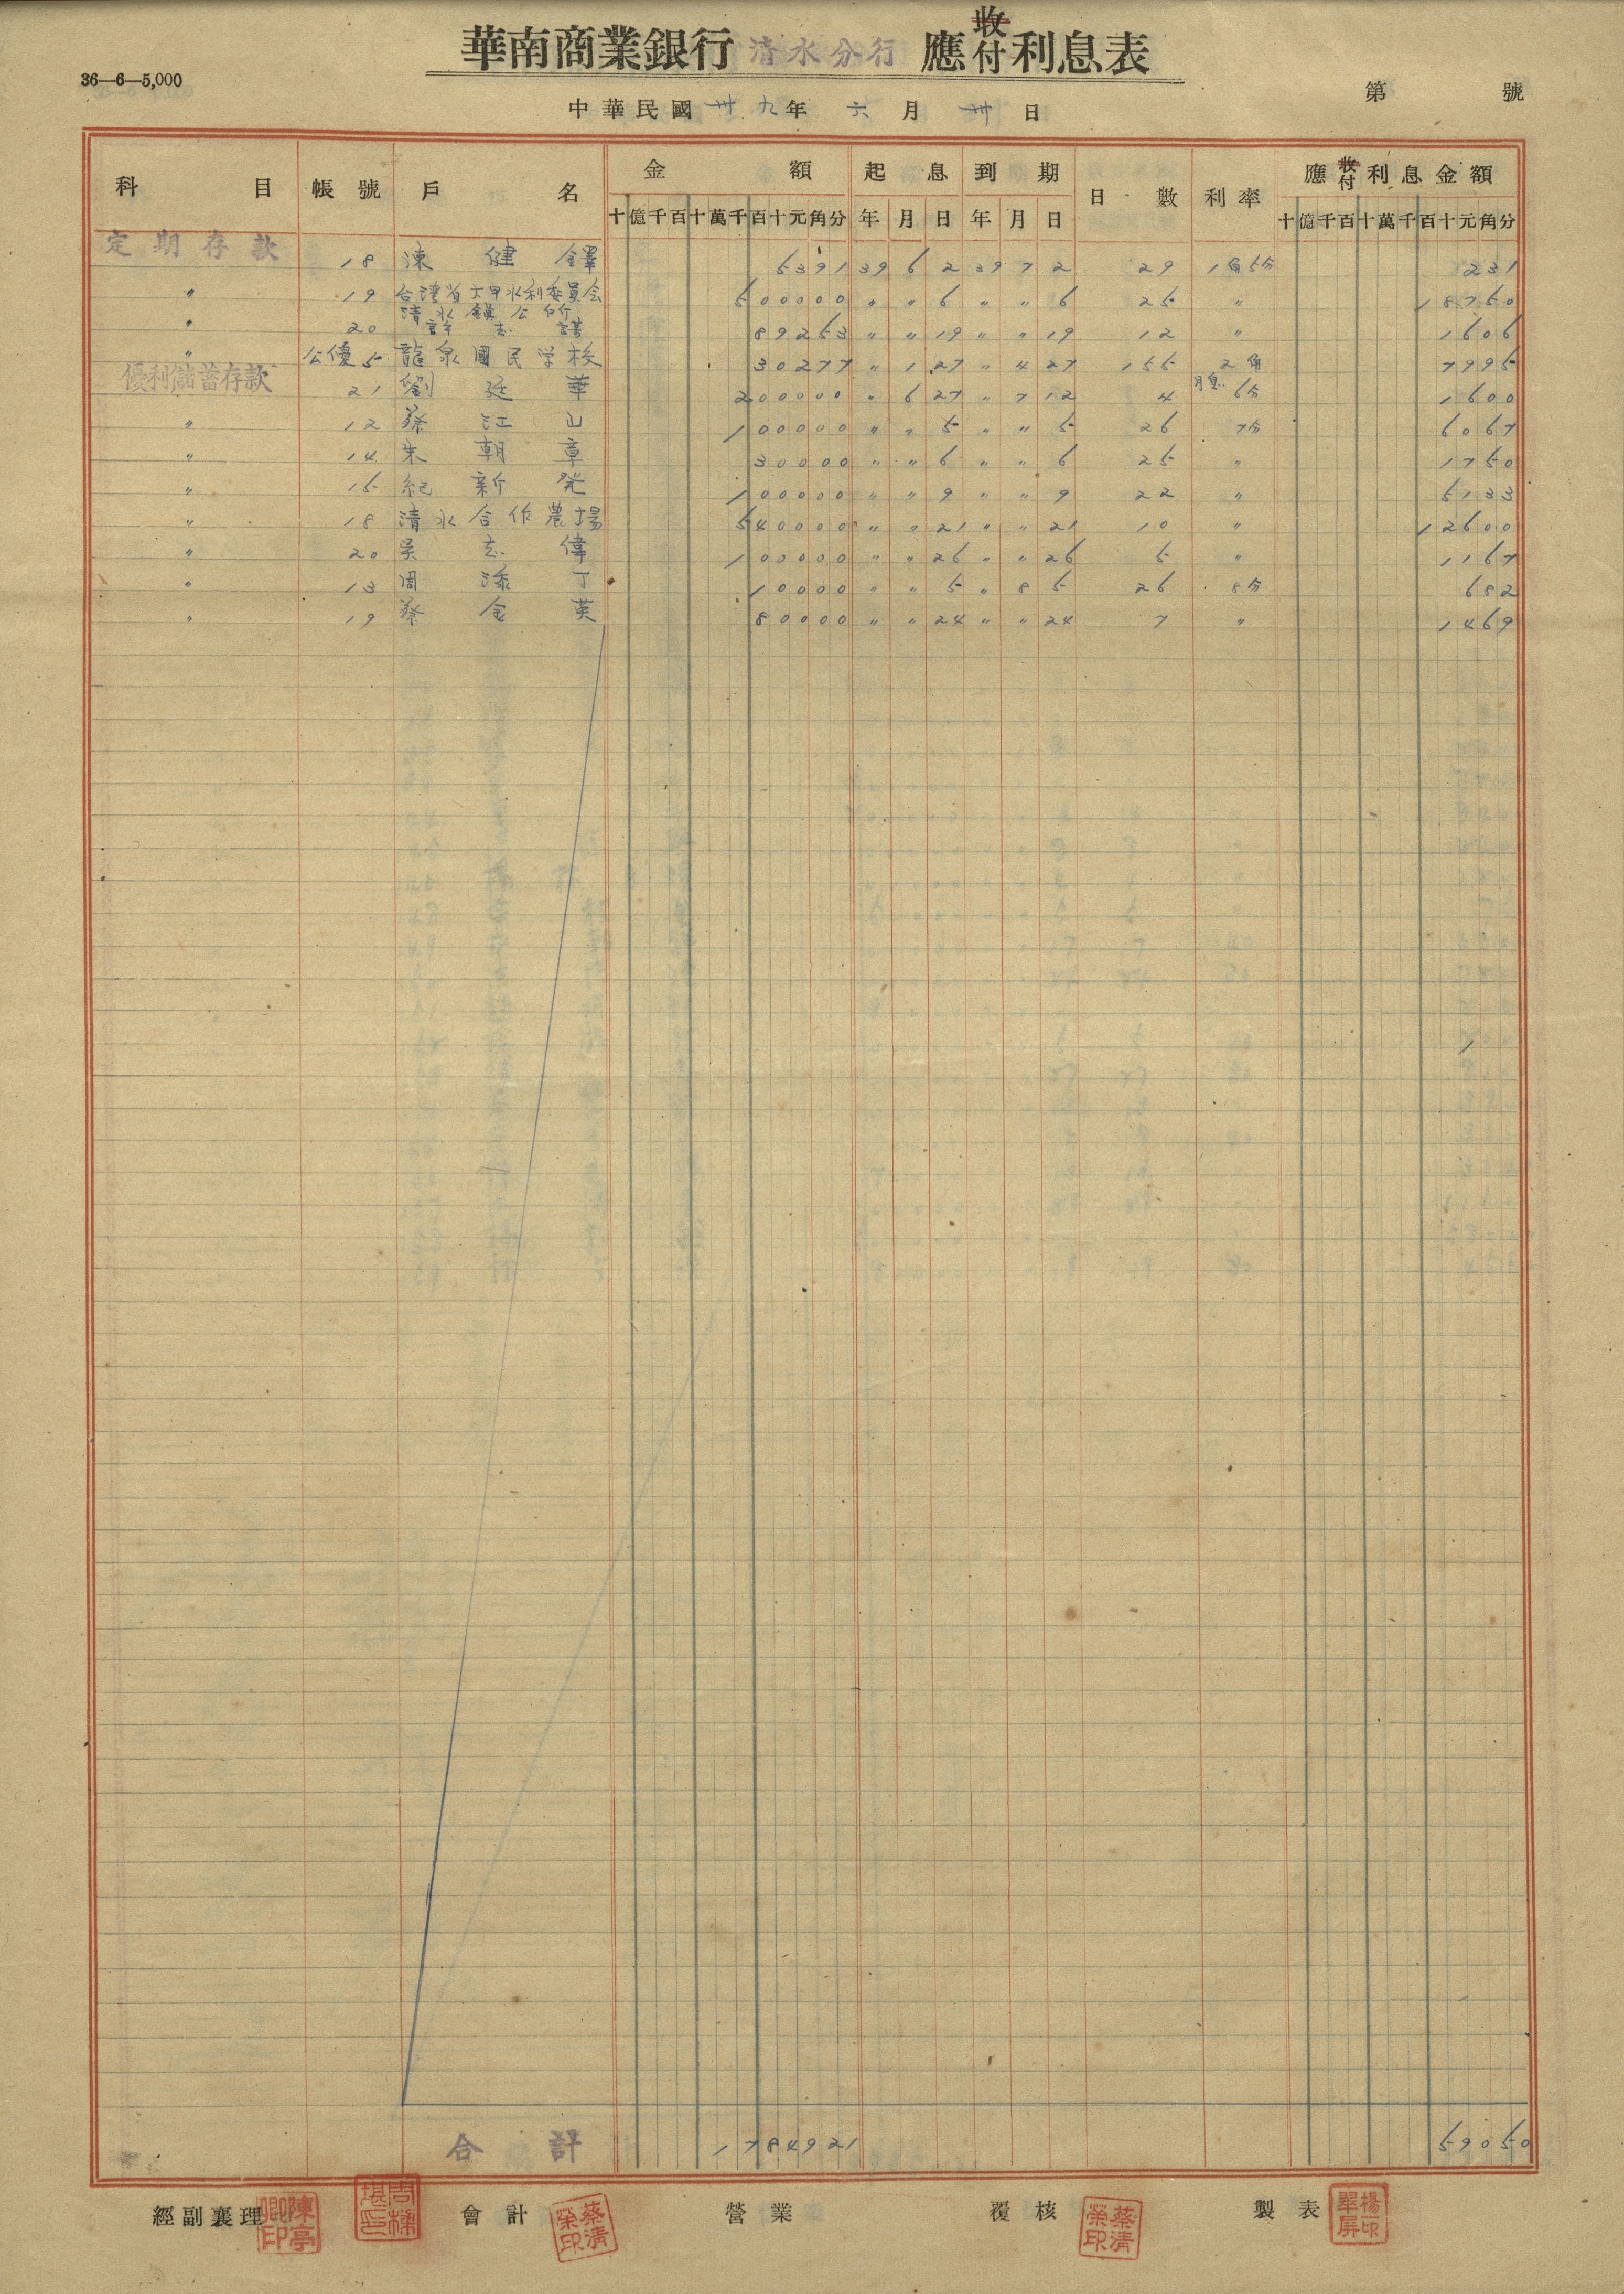 36—6—5,000
華南商業銀行 清水分行 應收付利息表
中華民國 卅九年 六月 卅日
第 號
科目 帳號 戶名 金額 起息 到期 日數 利率 應收付利息金額
十億千百十萬千百十元角分 年月日 年月日 十億千百十萬千百十元角分
定期存款 18 陳健鐸 5391 39 6 2 39 7 2 29 1角5分 231
〃 19 台湾省大甲水利委員会 500000 〃 〃 6 〃 〃 6 25 〃 18750
清水鎮公所
〃 20 許志謨 89253 〃 〃 19 〃 〃 19 12 〃 1606
〃 公優5 龍泉國民学校 30277 〃 1 27 〃 4 27 155 2角 7995
優利儲蓄存款 21 劉廷華 200000 〃 6 27 〃 7 12 4 月息6分 1600
〃 12 蔡江山 100000 〃 〃 5 〃 〃 5 26 7分 6067
〃 14 朱朝章 30000 〃 〃 6 〃 〃 6 25 〃 1750
〃 15 紀新発 100000 〃 〃 9 〃 〃 9 22 〃 5133
〃 18 清水合作農場 540000 〃 〃 21 〃 〃 21 10 〃 12600
〃 20 吳志偉 100000 〃 〃 26 〃 〃 26 5 〃 1167
〃 13 周添丁 10000 〃 〃 5 〃 8 5 26 8分 682
〃 19 蔡金英 80000 〃 〃 24 〃 〃 24 7 〃 1469
合計 1784921 59050
經副襄理 陳亭卿印 會計 蔡清榮印 營業 覆核 蔡清榮印 製表 楊翠屏印